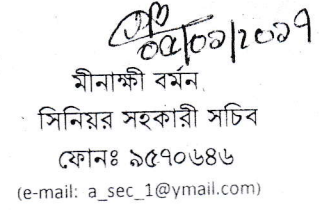 ০৫/০১/২০১৭
মীনাক্ষী বর্মন
সিনিয়র সহকারী সচিব
ফোনঃ ৯৫৭০৬৪৬
(e-mail: a_sec_1@ymail.com)